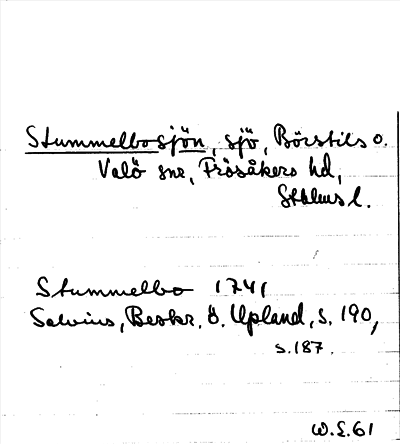 Stummelbosjön, sjö, Börstils o.
Valö snr, Frösåkers hd,
Sthlms l.
Stummelbo 1741
Salvius, Beskr. ö. Upland, s. 190,
s. 187.
W.L. 61